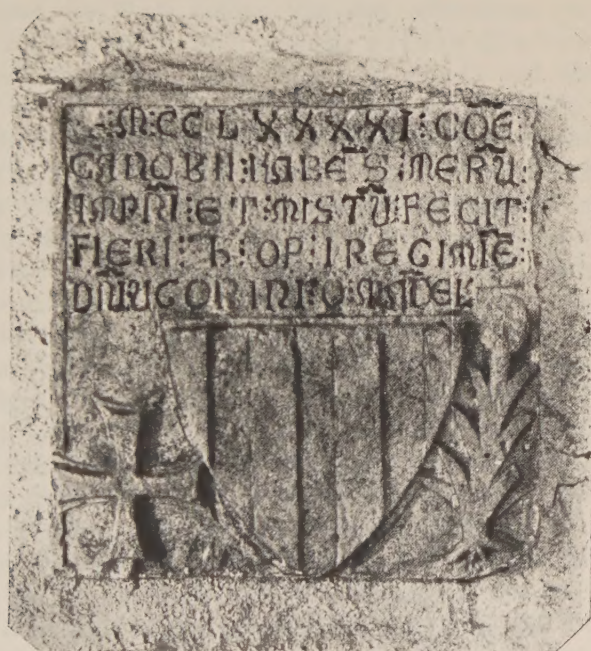 ·M:CC L XXXXI:COE:
CANOBII:HABE͞S:MERU̅:
IMPRI̅:ET:MISTU̅:FECIT:
FIERI:H̅:OP:I REGIMIE̅:
DN̅I UGORINI:Q:MADEL